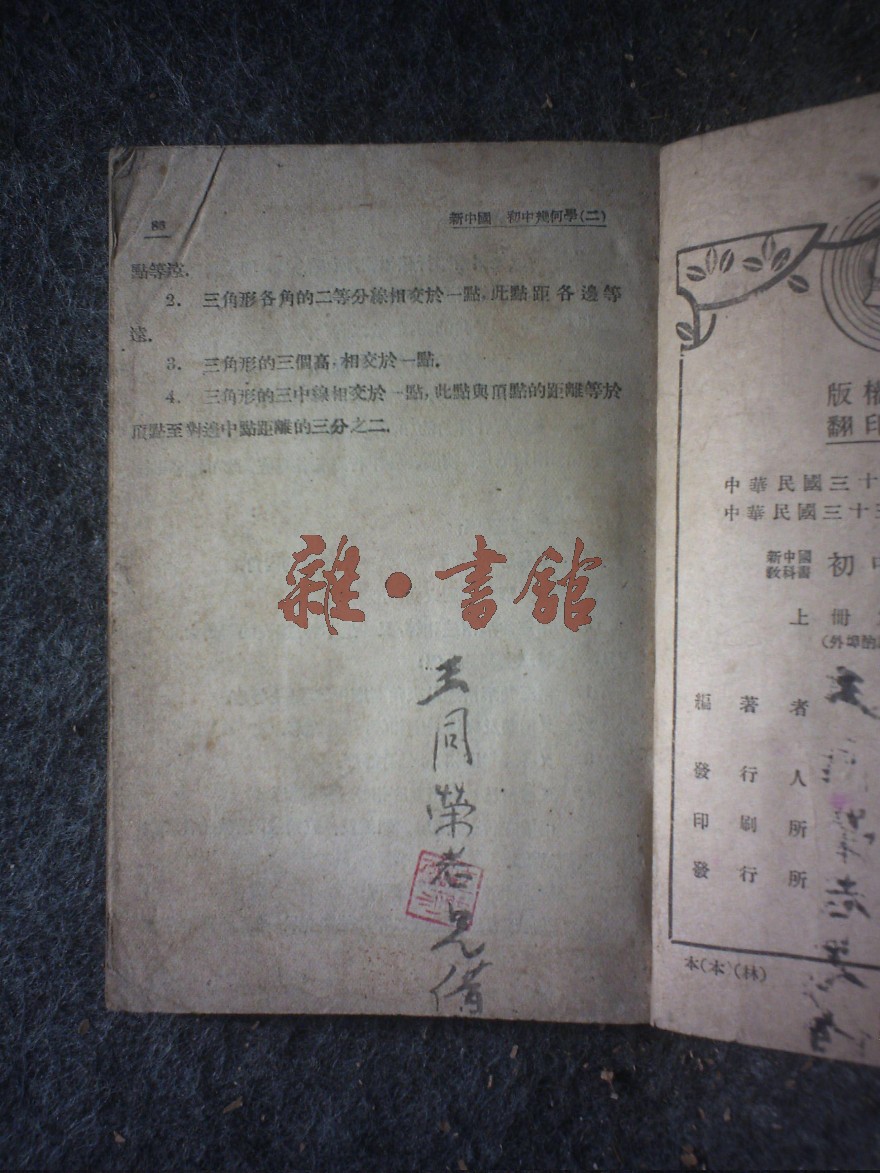 86
新中國 初中幾何學(二)
點等遠.
2. 三角形各角的二等分線相交於一點,此點距各邊等
遠.
3. 三角形的三個高,相交於一點.
4. 三角形的三中線相交於一點,此點與頂點的距離等於
頂點至對邊中點距離的三分之二.
雜·書館
王同榮老兄借
版權
翻印
中華民國三十
中華民國三十三
新中國
教科書
初中
上冊
(外埠酌
編著者
發行人
印刷所
發行所
本(本)(林)